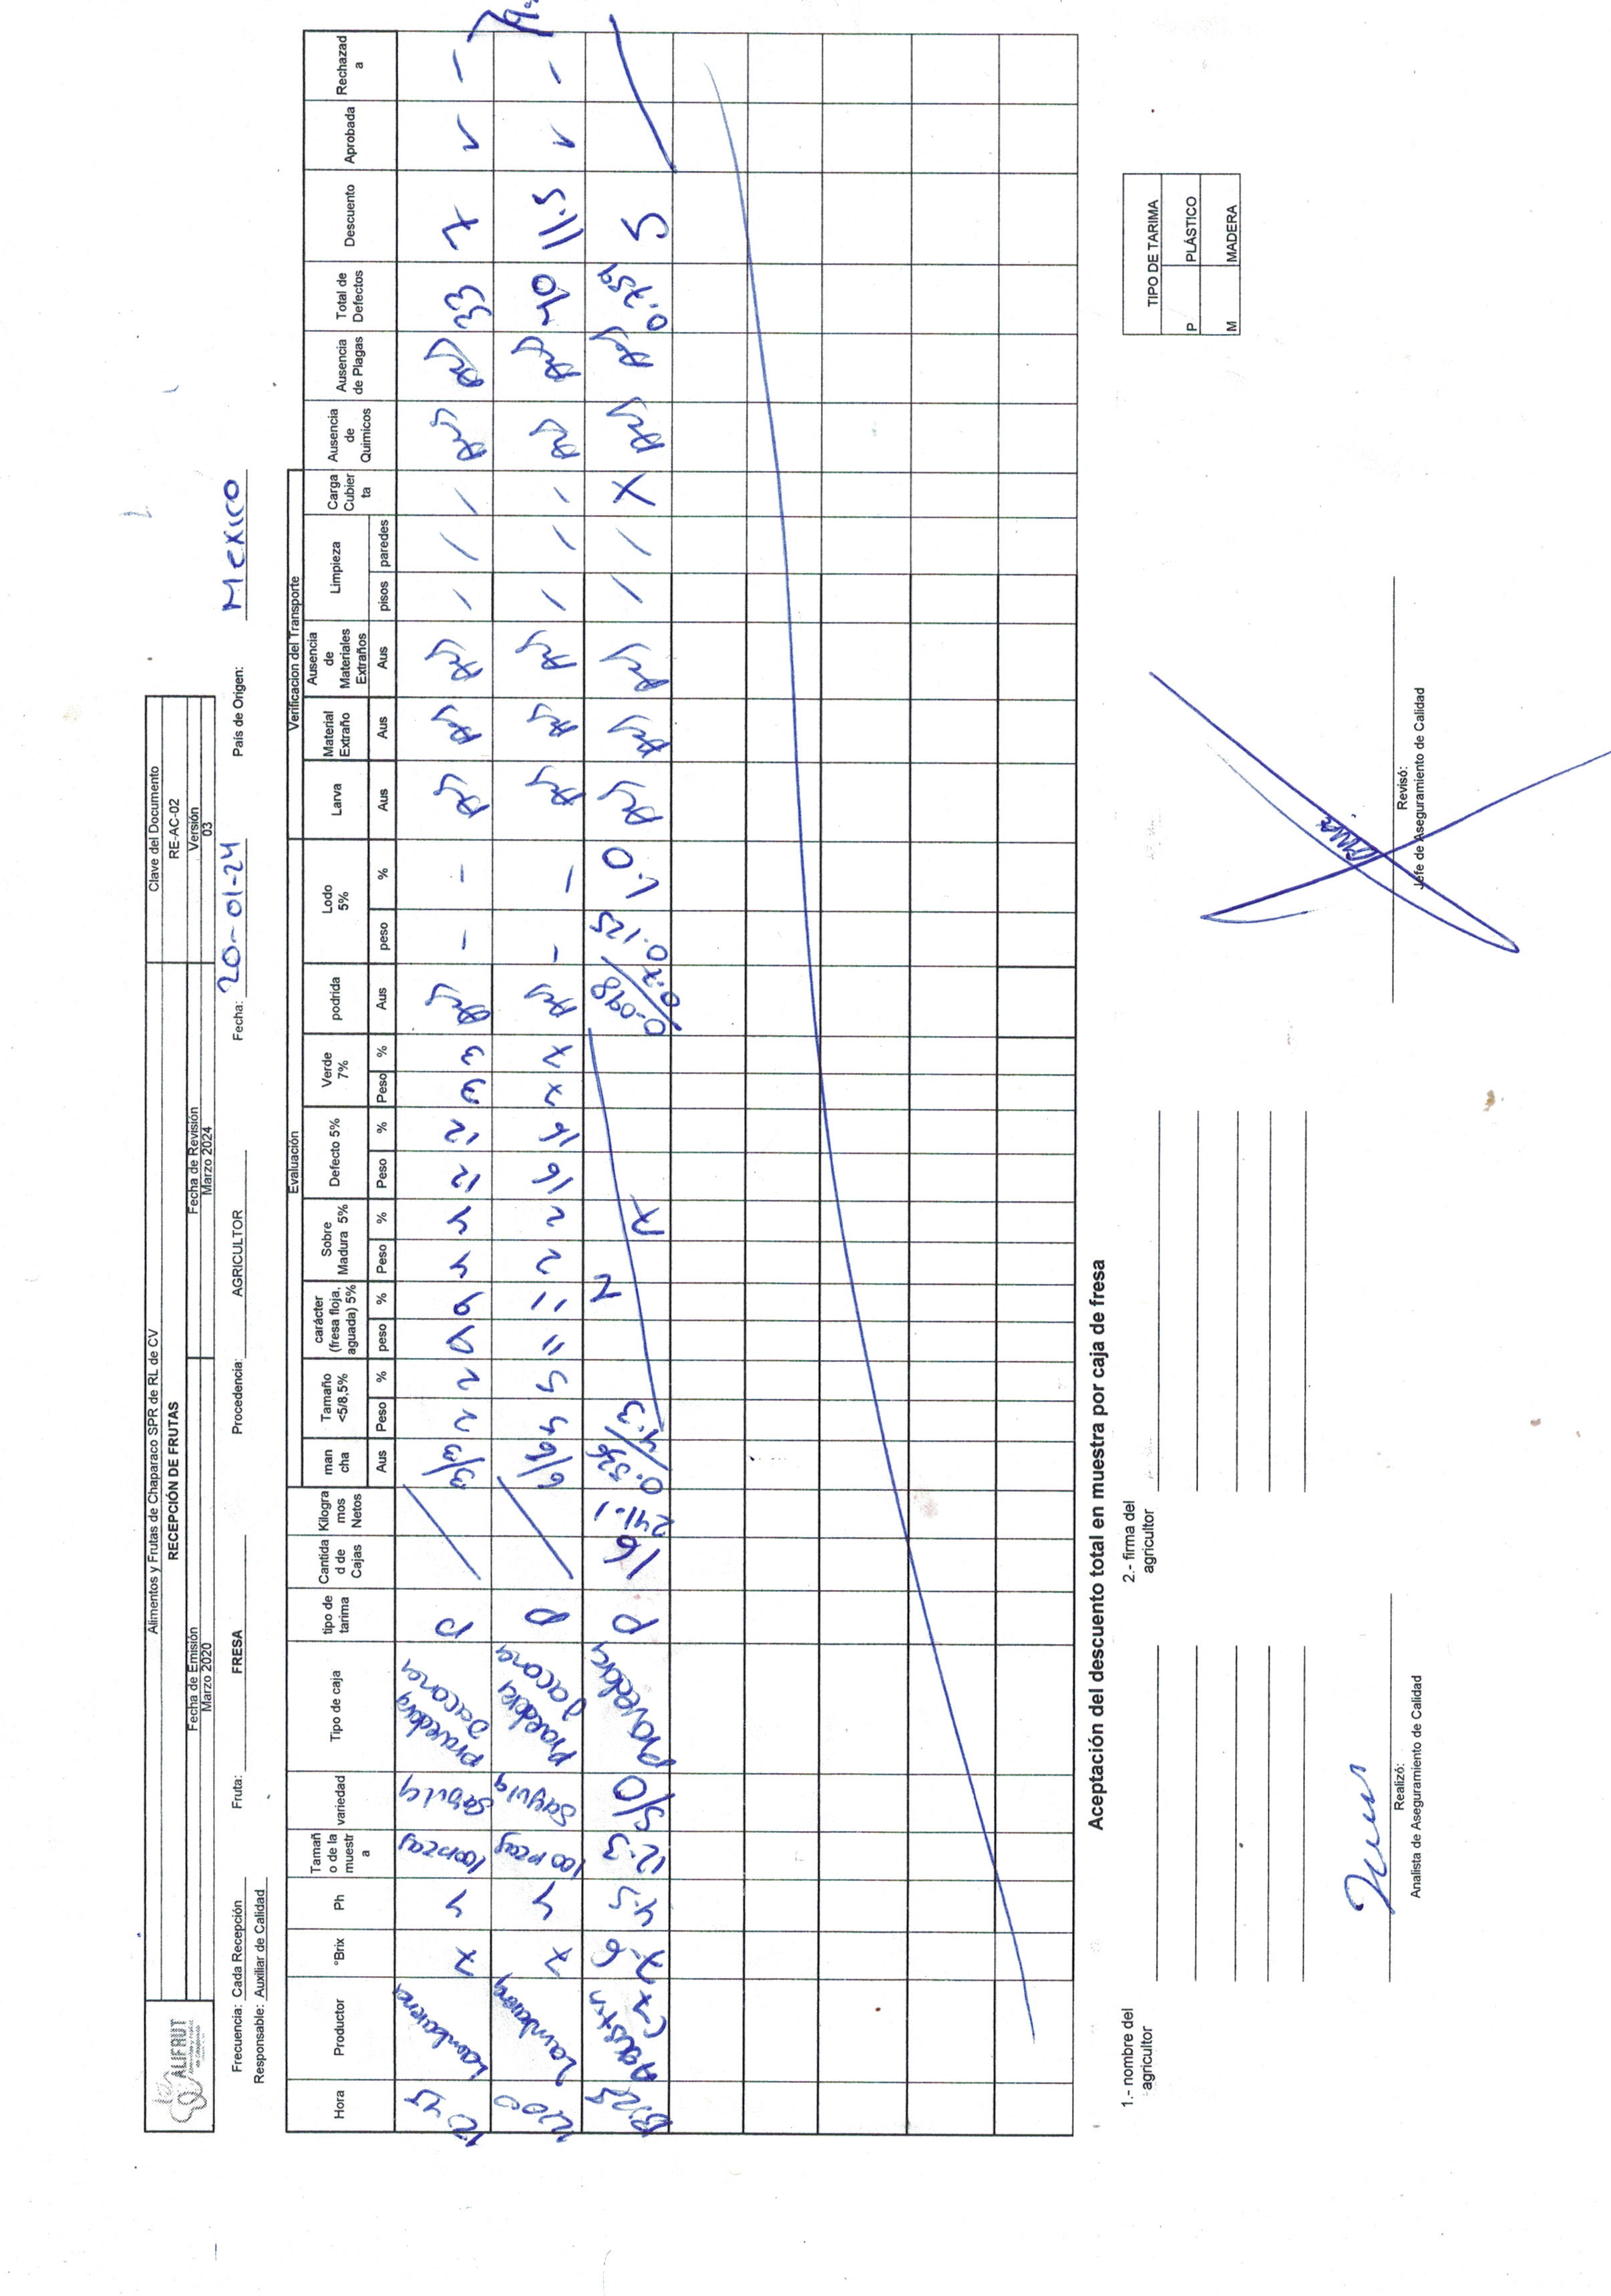 ALIFRUT
Alimentos y Frutas de Chaparaco SPR de RL de CV
Clave del Documento
RECEPCIÓN DE FRUTAS
RE-AC-02
Fecha de Emisión
Fecha de Revisión
Versión
Marzo 2020
Marzo 2024
03
Frecuencia: Cada Recepción Fruta: FRESA Procedencia: AGRICULTOR Fecha: 20-01-24 País de Origen: Mexico
Responsable: Auxiliar de Calidad
Evaluación
Verificacion del Transporte
Hora
Productor
°Brix
Ph
Tamañ
o de la
muestr
a
variedad
Tipo de caja
tipo de
tarima
Cantida
d de
Cajas
Kilogra
mos
Netos
man
cha
Tamaño
<5/8,5%
carácter
(fresa floja,
aguada) 5%
Sobre
Madura 5%
Defecto 5%
Verde
7%
podrida
Lodo
5%
Larva
Material
Extraño
Ausencia
de
Materiales
Extraños
Limpieza
Carga
Cubier
ta
Ausencia
de
Quimicos
Ausencia
de Plagas
Total de
Defectos
Descuento
Aprobada
Rechazad
a
Aus Peso % peso % Peso % Peso % Peso % Aus peso % Aus Aus Aus pisos paredes
7 4 100mzas Provedora Jacona P 3/3 2 2 9 9 4 4 12 12 3 3 Aus - - Aus Aus Aus / / / Aus Aus 33 7 ✓ -
7 4 100mzas Provedora Jacona P 6/6 5 5 11 11 2 2 16 16 7 7 Aus - - Aus Aus Aus / / / Aus Aus 40 11.5 ✓ -
13:25 Agustin C-7 7-6 4.5 12.3 S/O Provedora P 16 241.1 0.536/4.3 N A 0.098/0.7 0.125 1.0 Aus Aus Aus / / X Aus Aus 0.759 5
Aceptación del descuento total en muestra por caja de fresa
1.- nombre del
agricultor
2.- firma del
agricultor
TIPO DE TARIMA
P PLÁSTICO
M MADERA
Realizó:
Analista de Aseguramiento de Calidad
Revisó:
Jefe de Aseguramiento de Calidad